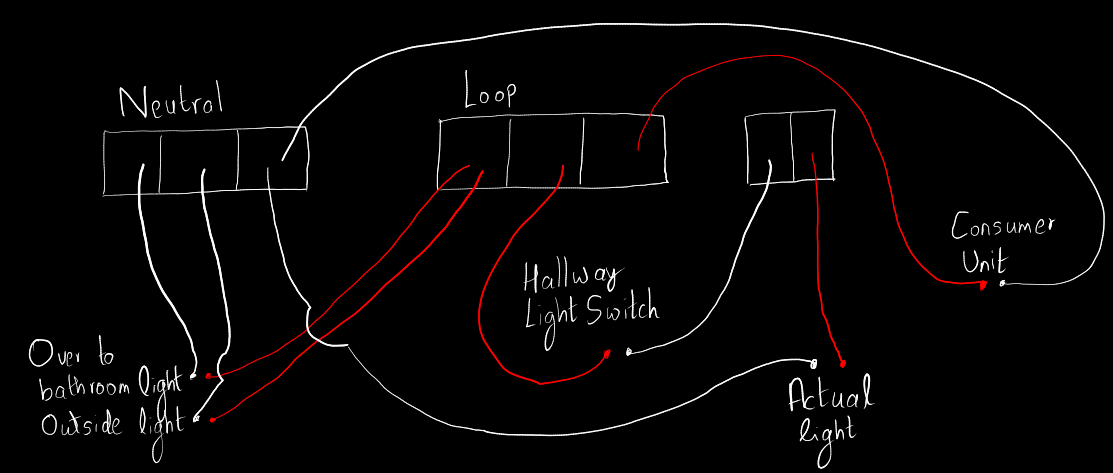 Neutral
Loop
Consumer
Unit
Hallway
Light Switch
Over to
bathroom light
Outside light
Actual
light